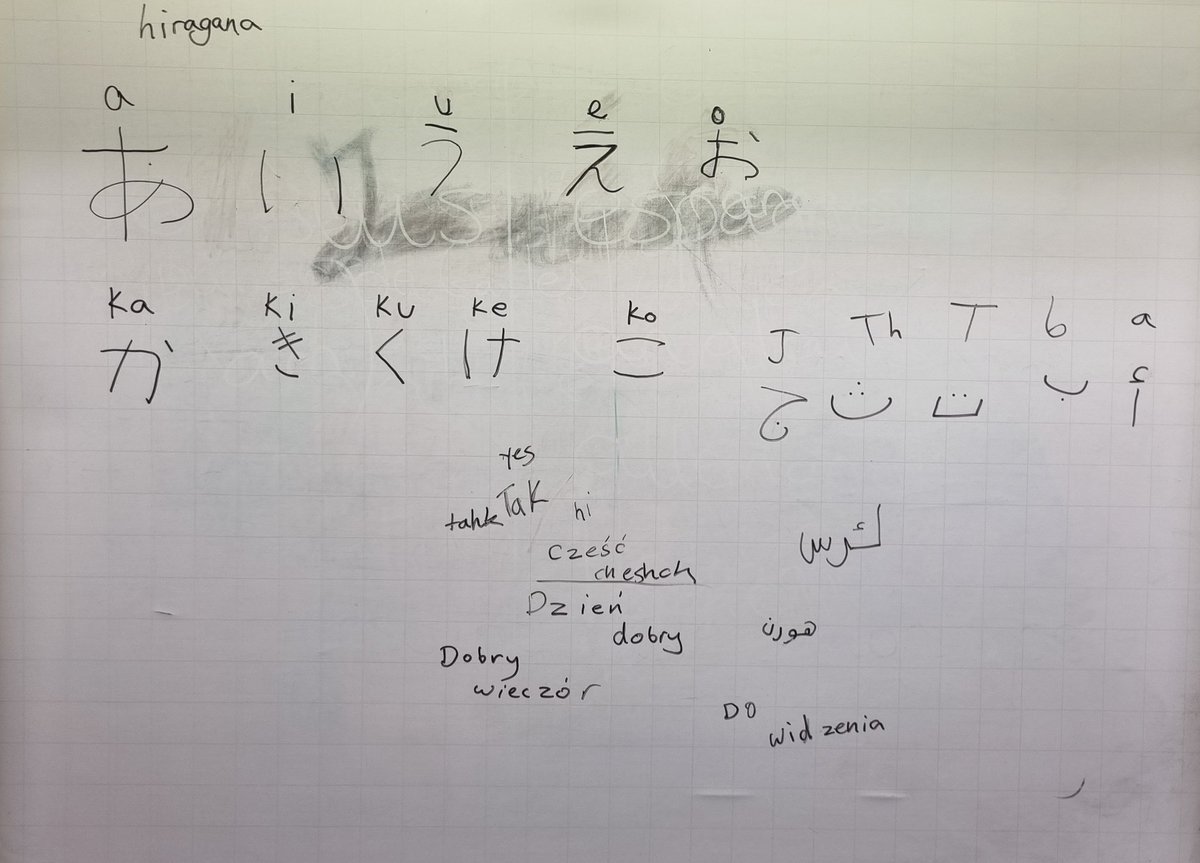 hiragana
a i u e o
あ い う え お
ka ki ku ke ko
か き く け こ
J Th T b a
ج ث ت ب أ
yes
tahk Tak hi
cześć
cheshch
Dzień
dobry
هورن
Dobry
wieczór
DO
widzenia